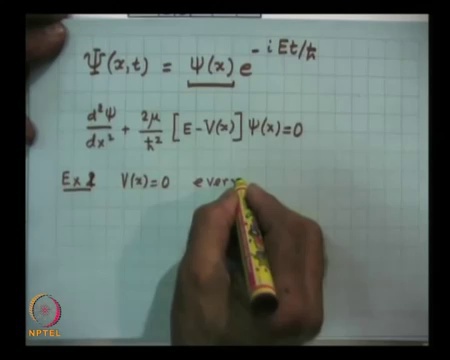 Ψ(x,t) = ψ(x) e^{-iEt/ħ}
d²ψ/dx² + 2μ/ħ² [E-V(x)] ψ(x)=0
Ex 1 V(x)=0 every
NPTEL